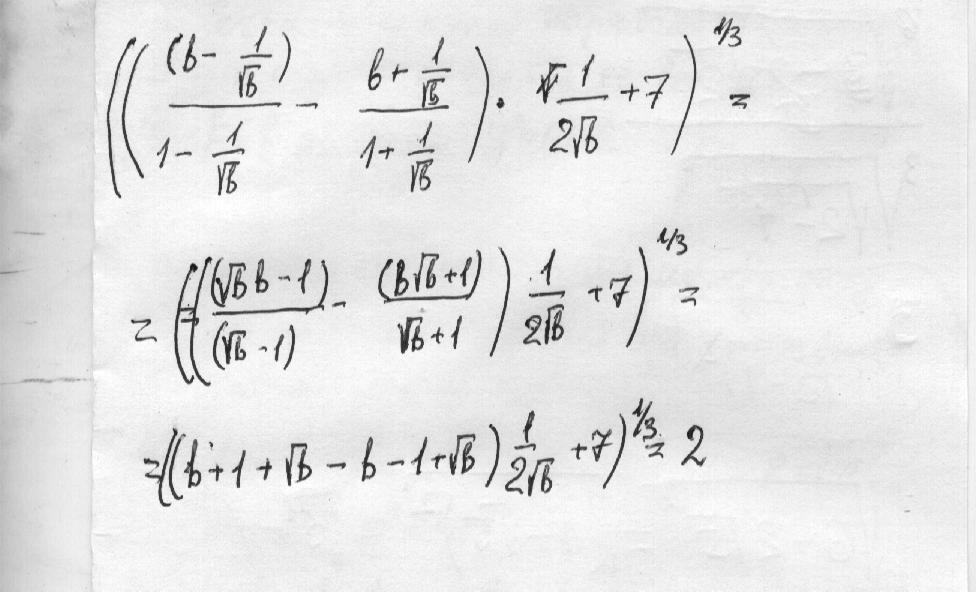 (((b - 1/√b)/(1 - 1/√b) - (b + 1/√b)/(1 + 1/√b)) · 1/(2√b) + 7)^{1/3} =
= (((√b b - 1)/(√b - 1) - (b√b + 1)/(√b + 1)) 1/(2√b) + 7)^{1/3} =
= ((b + 1 + √b - b - 1 + √b) 1/(2√b) + 7)^{1/3} = 2